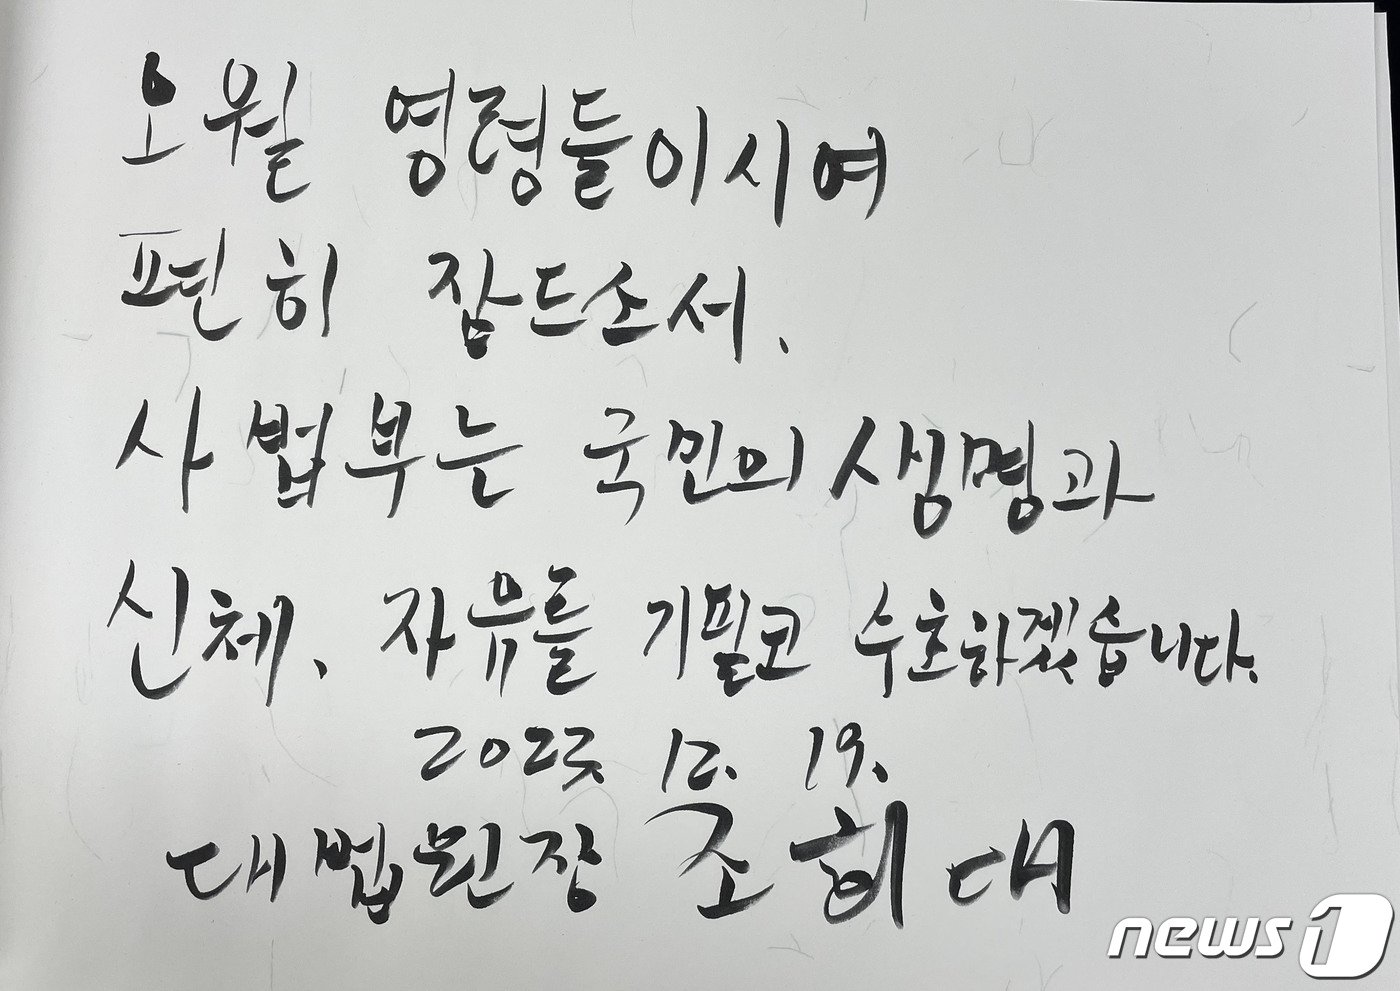 오월 영령들이시여
편히 잠드소서.
사법부는 국민의 생명과
신체, 자유를 기필코 수호하겠습니다.
2023. 12. 19.
대법원장 조희대
news1